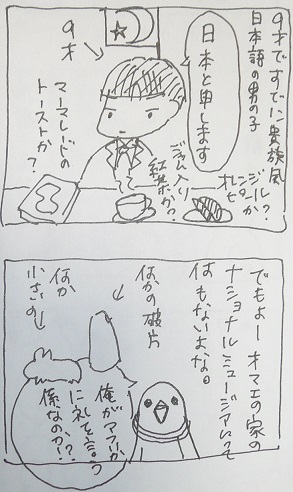 9才ですでに貴族風
日本語の男の子
日本と申します
9才
ジャム入り
紅茶か?
マーマレードの
トーストか?
でもよーオマエの家の
ナショナルミュージアムって
何もないよな。
何かの破片
何か
小さいの
俺が
に礼を言う
係なのか!?